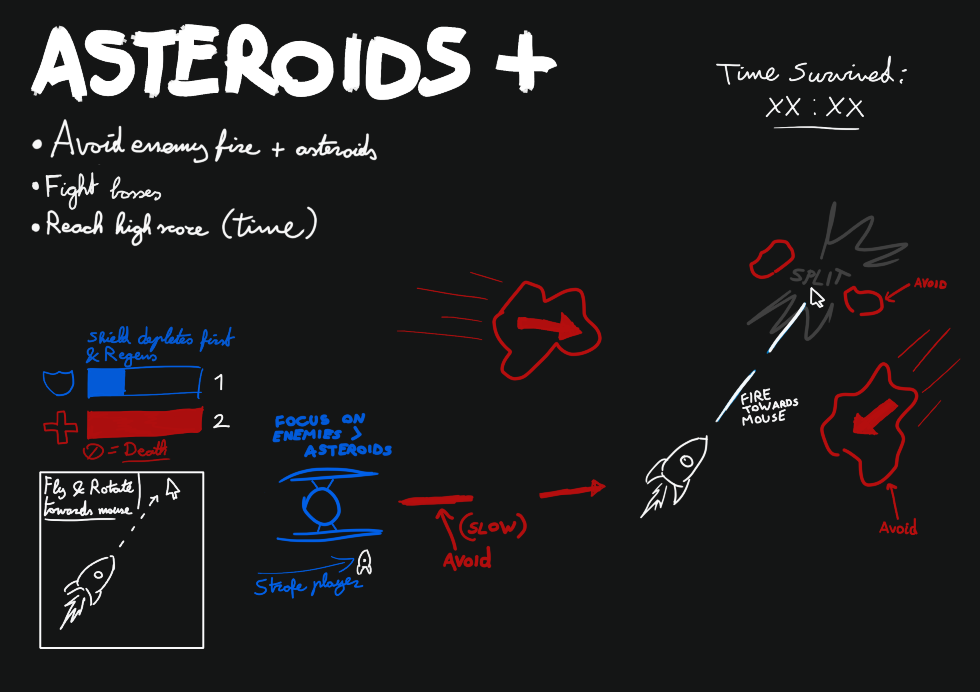 ASTEROIDS +
Time Survived:
XX : XX
• Avoid enemy fire + asteroids
• Fight bosses
• Reach high score (time)
SPLIT
AVOID
Shield depletes first
& Regens
1
2
0 = Death
FIRE
TOWARDS
MOUSE
FOCUS ON
ENEMIES >
ASTEROIDS
Fly & Rotate
towards mouse
(SLOW)
Avoid
Avoid
Strafe player